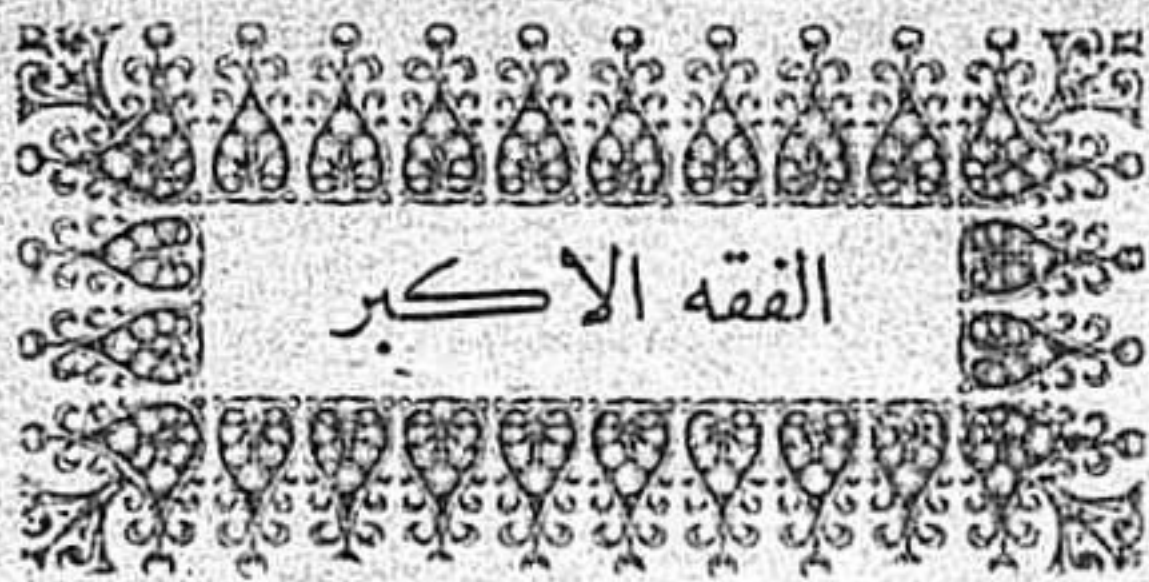 الفقه الاكبر